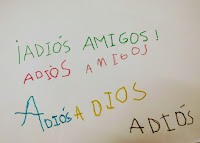 ¡ADIÓS AMIGOS!
ADIÓS AMIGOS
ADIÓS ADIOS
ADIÓS